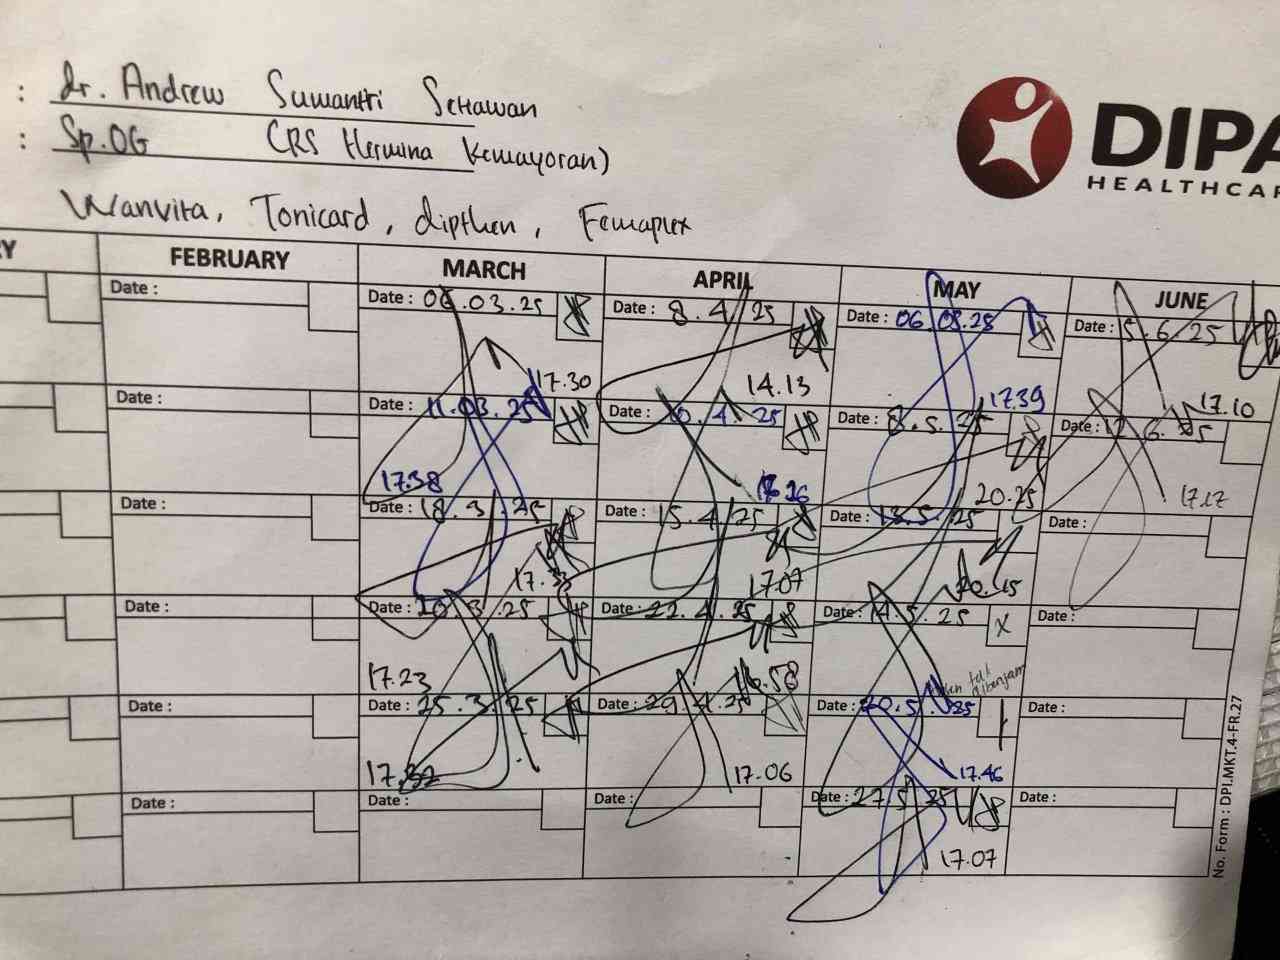 : dr. Andrew Suwantri Setiawan
: Sp.OG (RS Hermina Kemayoran)
DIPA
HEALTHCAR
Wanvita, Tonicard, dipthen, Femaplex
Y FEBRUARY MARCH APRIL MAY JUNE
Date : Date : 06.03.25 Date : 8.4.25 Date : 06.05.25 Date : 5.6.25
17.30 14.13 17.39 17.10
Date : Date : 11.03.25 Date : 10.4.25 Date : 8.5.25 Date : 12.6.25
17.38 20.25 17.17
Date : Date : 18.3.25 Date : 15.4.25 Date : 13.5.25 Date :
17.33 17.07 20.15
Date : Date : 20.3.25 Date : 22.4.25 Date : 14.5.25 x Date :
17.23 16.58
Date : Date : 25.3.25 Date : 29.4.25 Date : 20.5.25 Date :
17.32 17.06 17.46
Date : Date : Date : Date : 27.5.25 Date :
17.07
No. Form : DPI.MKT.4-FR.27